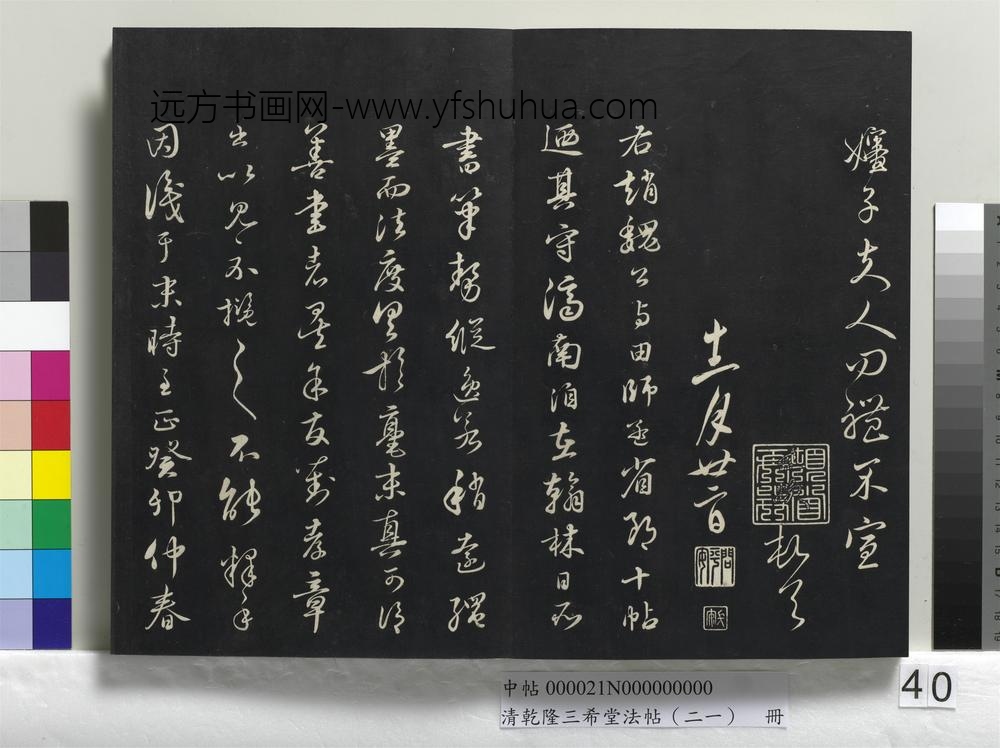 嬸子夫人 不宣
月廿
右趙魏公与田師孟省郎十帖
迺其守濟南洎在翰林日所
書筆勢縱逸若稍遠繩
墨而法度具於毫末真可謂
善書者 余友劉彥章
出以見示 之不能釋手
因識于末時至正癸卯仲春
远方书画网-www.yfshuhua.com
中帖 000021N000000000
清乾隆三希堂法帖（二一） 冊
40